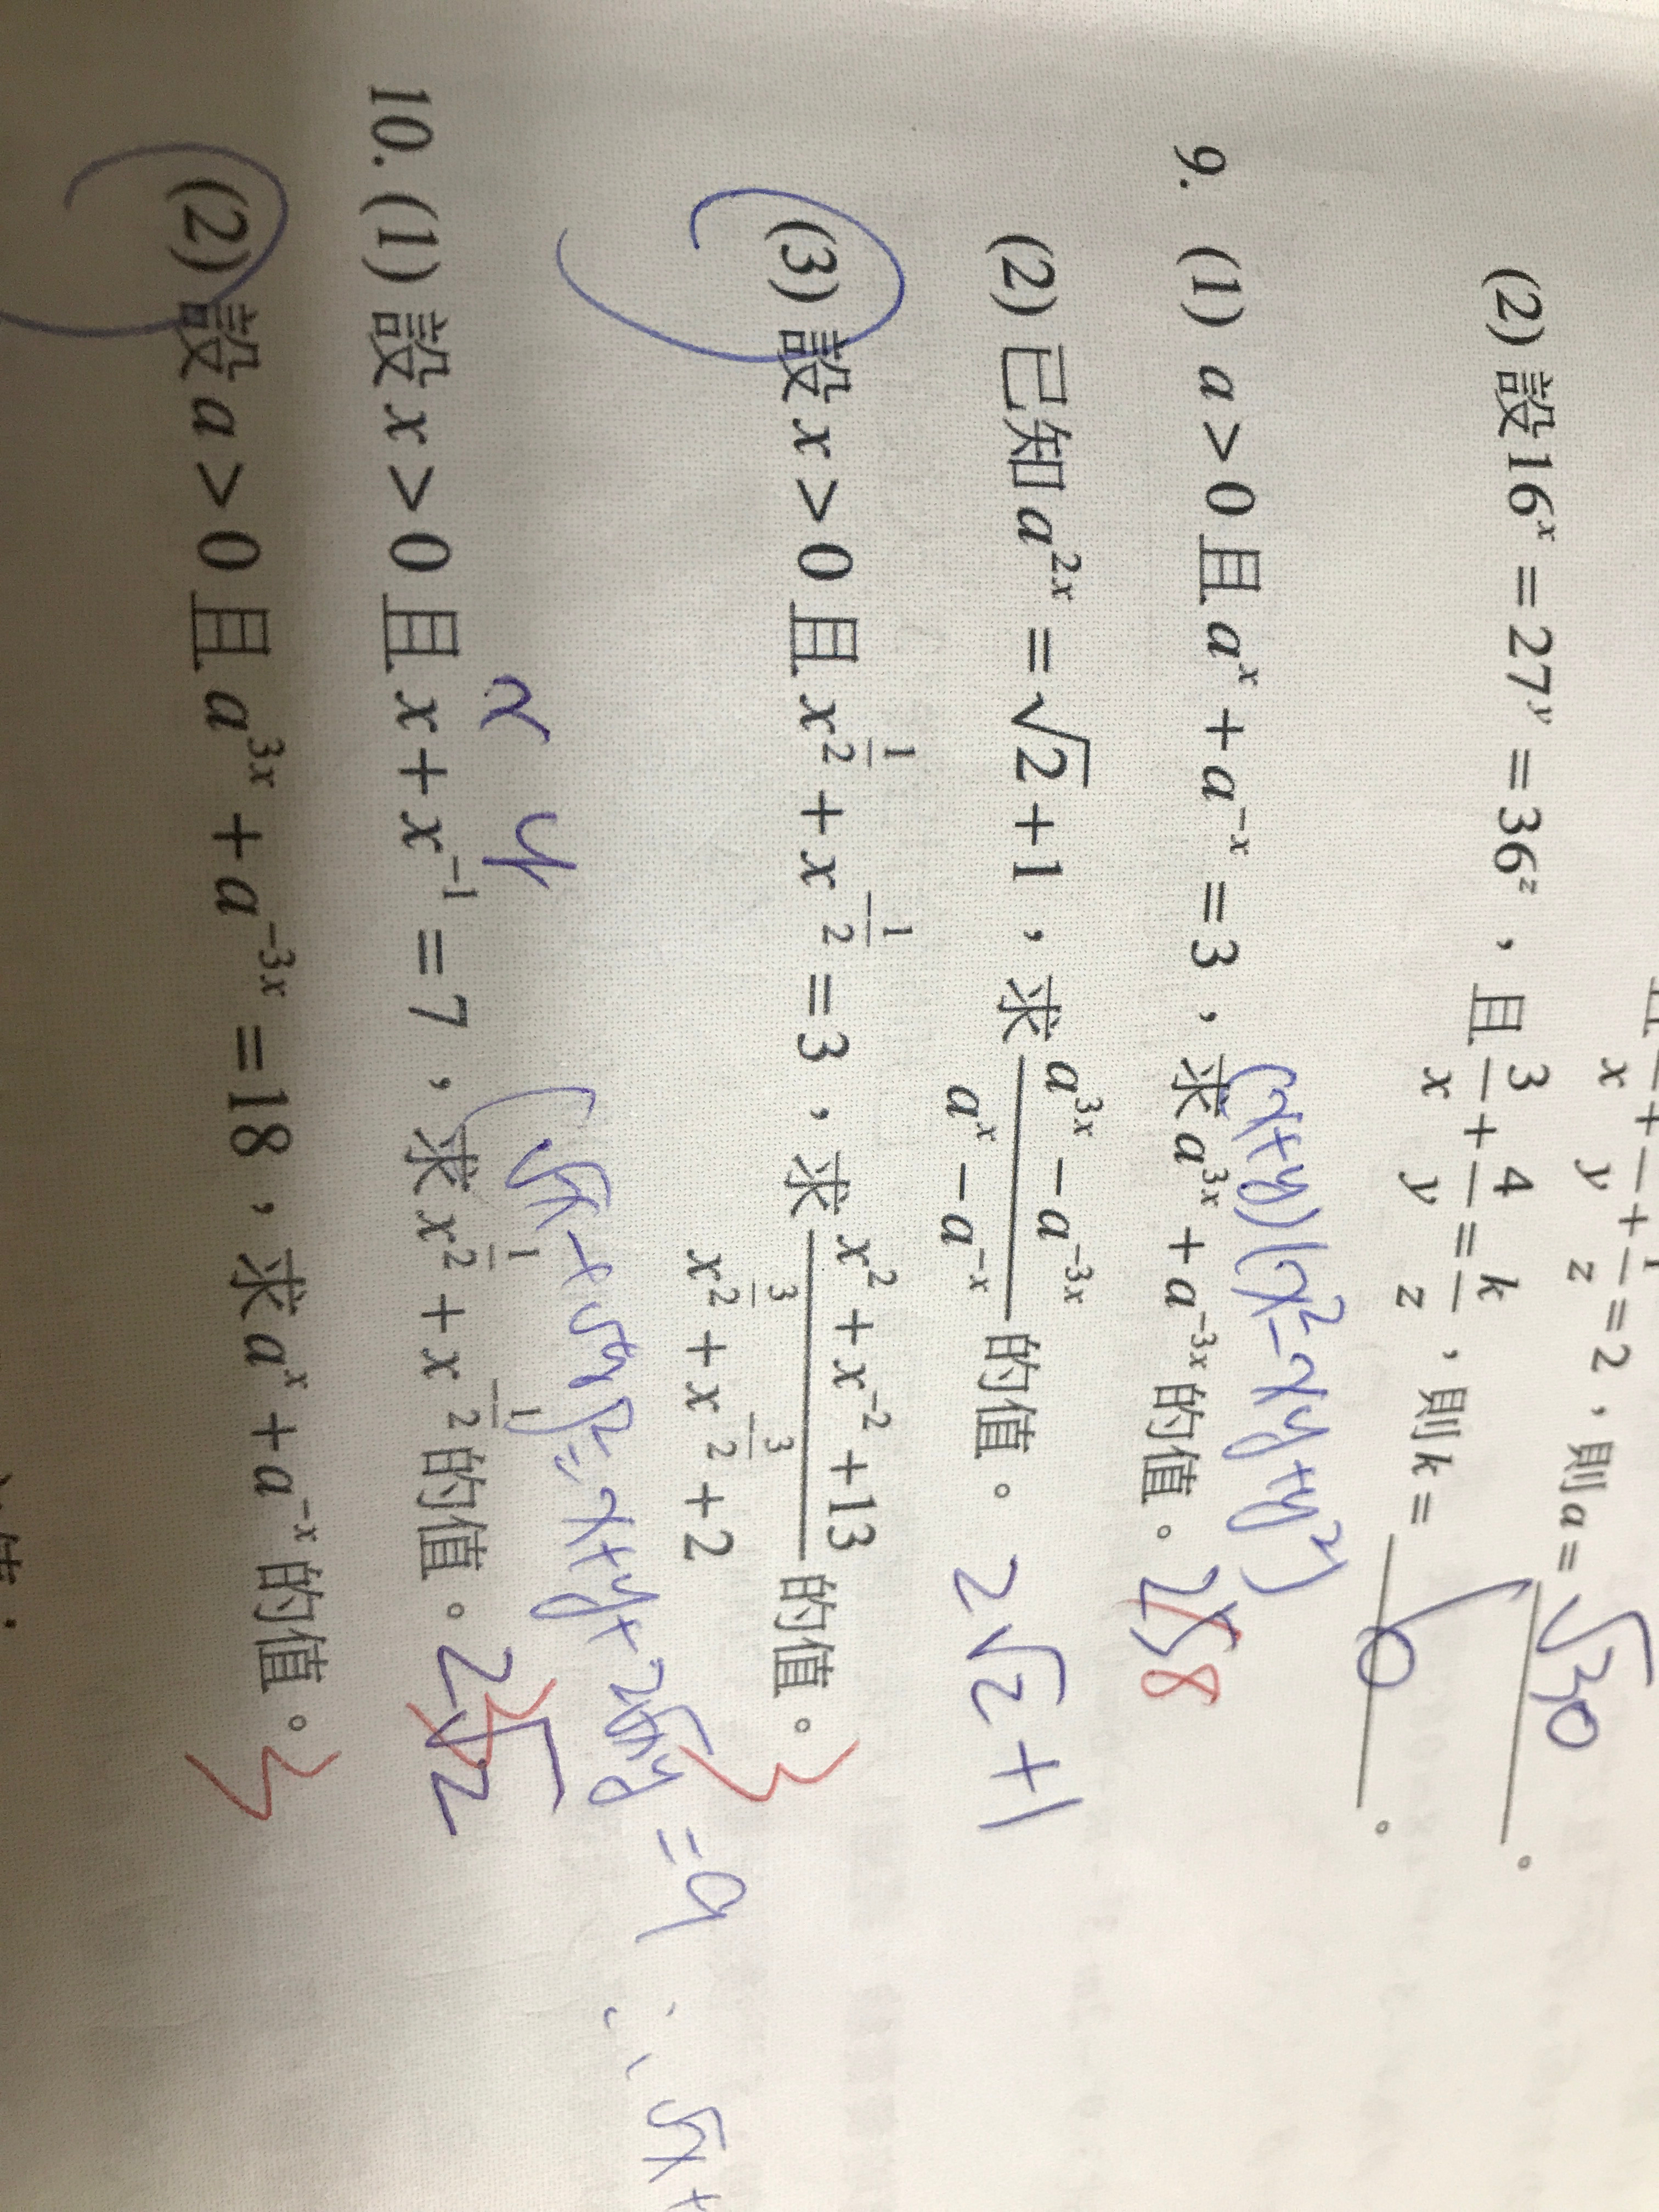 x + y + z = 2，則 a = √30
(2) 設 16^x = 27^y = 36^z，且 3/x + 4/y = k/z，則 k = 6。
(x+y)(x²-xy+y²)
9. (1) a > 0 且 a^x + a^-x = 3，求 a^3x + a^-3x 的值。 18
(2) 已知 a^2x = √2 + 1，求 (a^3x - a^-3x)/(a^x - a^-x) 的值。 2√2+1
(3) 設 x > 0 且 x^(1/2) + x^(-1/2) = 3，求 (x² + x^-2 + 13)/(x^(3/2) + x^(-3/2) + 2) 的值。 3
(√x+√y)² = x+y+2√xy = 9 ∴ √x+
x y
10. (1) 設 x > 0 且 x + x^-1 = 7，求 x^(1/2) + x^(-1/2) 的值。 2√2
(2) 設 a > 0 且 a^3x + a^-3x = 18，求 a^x + a^-x 的值。 3